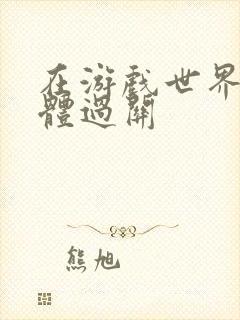 在游戲世界
體過關
熊旭